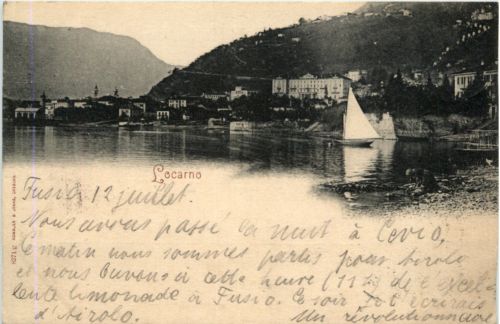 Locarno
Fusio 12 juillet.
Nous avons passé la nuit à Cevio,
Ce matin nous sommes partis pour Airolo
et nous buvons à cette heure (11½) de l'excel-
lente limonade à Fusio. Ce soir j'écrirais
d'Airolo. Un révolutionnaire